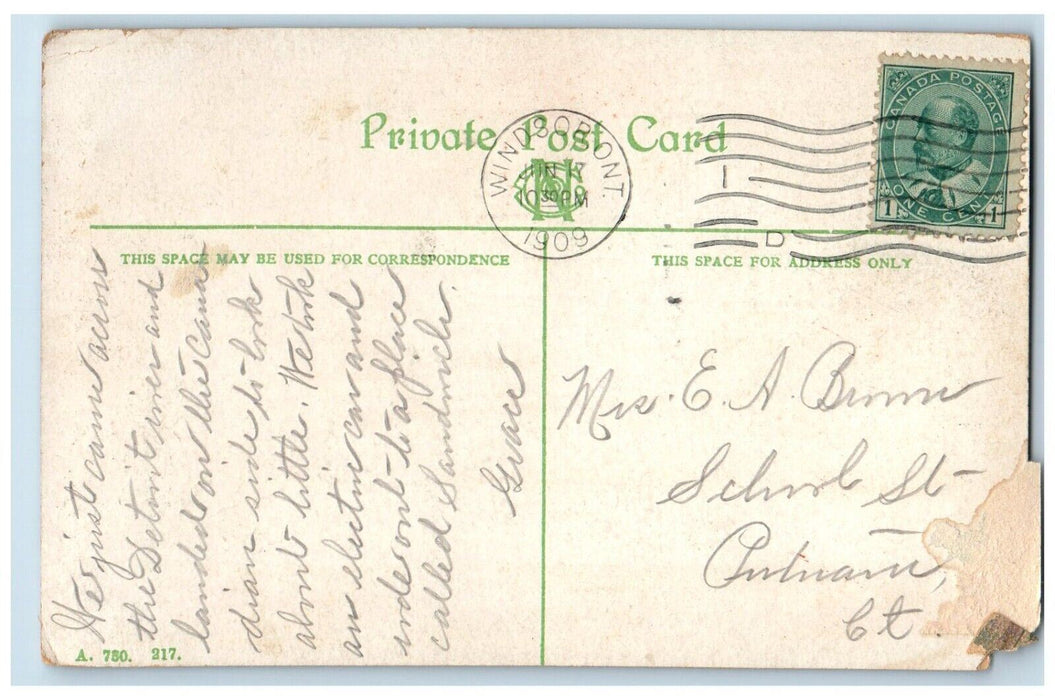 Private Post Card
WINDSOR, ONT.
JUN 17
10 30 PM
1909
D
CANADA POSTAGE
1 ONE CENT 1
THIS SPACE MAY BE USED FOR CORRESPONDENCE
THIS SPACE FOR ADDRESS ONLY
We just came across
the Detroit river and
landed on the Cana
dian side to look
about little. We took
an electric car and
rode out to a place
called Sandwich.
Grace
Mrs. E. A. Brown
School St
Putnam,
Ct.
A. 730. 217.